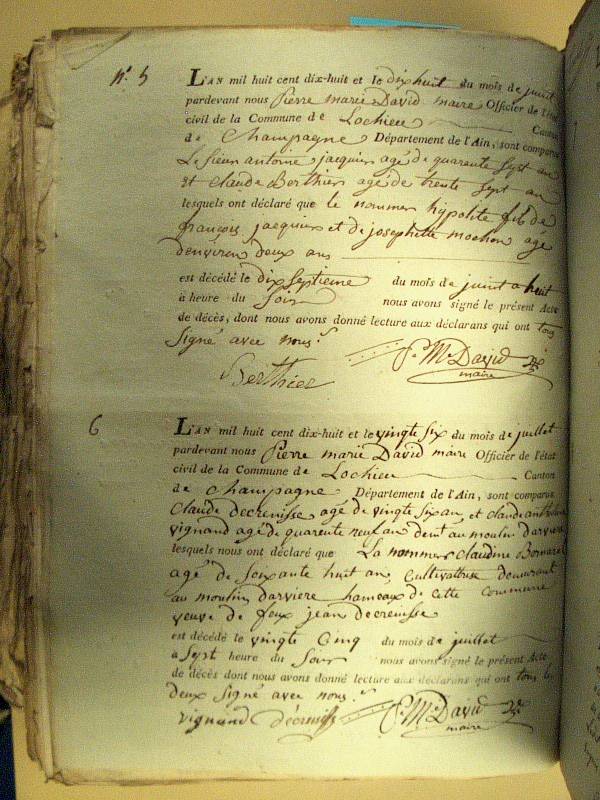 N.° 5
L'AN mil huit cent dix-huit et le dix huit du mois de juint
pardevant nous Pierre marie David maire Officier de l'état
civil de la Commune de Lochieu Canton
de Champagne Département de l'Ain, sont comparus
Le sieur antoine jacquier agé de quarente sept an
et Claude Berthier agé de trente sept an
lesquels ont déclaré que le nommer hypolite fils de
françois jacquier et de josephette mochon age
denviron deux ans
est décédé le dix septieme du mois de juint a huit
à heure du soir nous avons signé le présent Acte
de décès, dont nous avons donné lecture aux déclarans qui ont tous
signé avec nous.
Berthier P. M. David
maire
6
L'AN mil huit cent dix-huit et le vingte six du mois de juillet
pardevant nous Pierre marie David maire Officier de l'état
civil de la Commune de Lochieu Canton
de Champagne Département de l'Ain, sont comparus
Claude decrenisse agé de vingte six an et claude
vignand agé de quarente neuf an au moulin darviere
lesquels nous ont déclaré que La nommer Claudine
agé de soixante huit an Cultivatteuse demeurant
au moulin darviere hameaux de Cette Commune
veuve de feux jean decrenisse
est décédé le vingte Cinq du mois de juillet
a sept heure du Soir nous avons signé le présent Acte
de décès dont nous avons donné lecture aux déclarans qui ont tous
deux signé avec nous.
vignand décrenisse P. M. David
maire